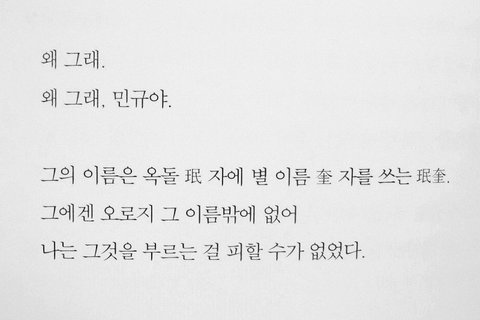 왜 그래.
왜 그래, 민규야.
그의 이름은 옥돌 珉 자에 별 이름 奎 자를 쓰는 珉奎.
그에겐 오로지 그 이름밖에 없어
나는 그것을 부르는 걸 피할 수가 없었다.